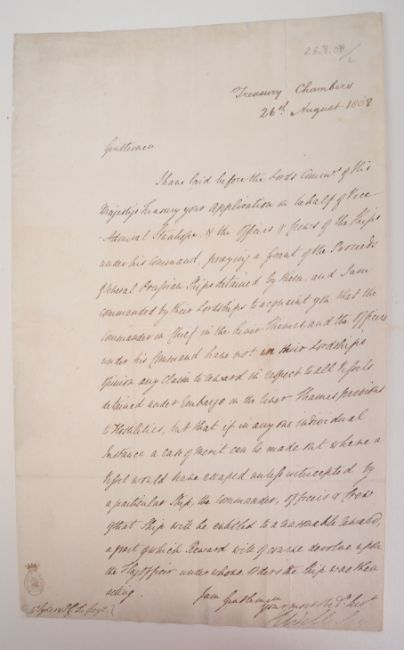 26.8.08/2
Treasury Chambers
26th August 1808
Gentlemen
I have laid before the Lords Commrs of His
Majesty's Treasury your Application on behalf of Vice
Admiral Stanhope & the Officers & Crews of the Ships
under his Command, praying a Grant of the Proceeds
of several Prussian Ships detained by them, and I am
commanded by their Lordships to acquaint you that the
Commander in Chief in the River Thames and the Officers
under his Command have not in their Lordships
Opinion any Claim to reward in respect to all Vessels
detained under Embargo in the River Thames previous
to Hostilities, but that if in any one individual
instance a case of merit can be made out where a
Vessel would have escaped unless intercepted by
a particular Ship, the Commander, Officers & Crew
of that Ship will be entitled to a reasonable reward,
a part of which Reward will of course devolve upon
the Flag Officer under whose Orders the Ship was then
acting.
I am Gentlemen
Your most Obedt Servt